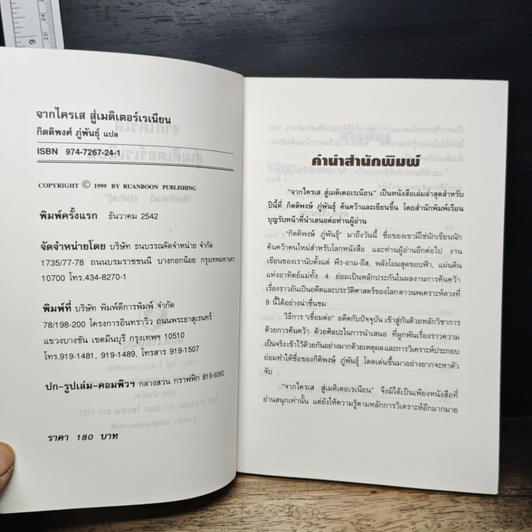 จากไครเส สู่เมดิเตอร์เรเนียน
กิตติพงศ์ ภู่พันธุ์ แปล
ISBN 974-7267-24-1
COPYRIGHT © 1999 BY RUANBOON PUBLISHING
พิมพ์ครั้งแรก ธันวาคม 2542
จัดจำหน่ายโดย บริษัท ธนบรรณจัดจำหน่าย จำกัด
1735/77-78 ถนนบรมราชชนนี บางกอกน้อย กรุงเทพมหานคร
10700 โทร.434-8270-1
พิมพ์ที่ บริษัท พิมพ์ดีการพิมพ์ จำกัด
78/198-200 โครงการอินทราวิว ถนนพระยาสุเรนทร์
แขวงบางชัน เขตมีนบุรี กรุงเทพฯ 10510
โทร.919-1481, 919-1489, โทรสาร 919-1507
ปก-รูปเล่ม-คอมพิวฯ กลางสวน กราฟฟิก 819-6060
ราคา 180 บาท
คำนำสำนักพิมพ์
"จากไครเส สู่เมดิเตอเรเนียน" เป็นหนังสือเล่มล่าสุดสำหรับ
ปีนี้ที่ กิติพงษ์ ภู่พันธุ์ ค้นคว้าและเขียนขึ้น โดยสำนักพิมพ์เรือน
บุญรับหน้าที่นำเสนอต่อท่านผู้อ่าน
"กิติพงษ์ ภู่พันธุ์" มาถึงวันนี้ ชื่อของเขามิใช่นักเขียนนัก
ค้นคว้าคนใหม่สำหรับโลกหนังสือ และท่านผู้อ่านอีกต่อไป งาน
เขียนของเรานับตั้งแต่ พีร-อาม-อีส, พลังโอมสุดขอบฟ้า, แผ่นดิน
แห่งอาทิตย์แม่ทั้ง 4 ย่อมเป็นหลักประกันในผลงานการค้นคว้า
เรื่องราวอันเป็นอดีตและประวัติศาสตร์ของโลกดาวนพเคราะห์ดวงที่
9 นี้ได้อย่างน่าชื่นชม
วิธีการ "เชื่อมต่อ" อดีตกับปัจจุบัน เข้าสู่กันด้วยหลักวิชาการ
ด้วยการค้นคว้า ด้วยศิลปะในการนำเสนอ ที่ผูกพันเรื่องราวความ
เป็นจริงเข้าไว้ด้วยกันอย่างมากด้วยเหตุผลและการวิเคราะห์ประกอบ
ย่อมทำให้ชื่อของกิติพงษ์ ภู่พันธุ์ โดดเด่นขึ้นมาอย่างยากจะหาตัว
จับ
"จากไครเส สู่เมดิเตอเรเนียน" จึงมิได้เป็นเพียงหนังสือที่
อ่านสนุกเท่านั้น แต่ยังให้ความรู้ตามหลักการวิเคราะห์อีกมากมาย